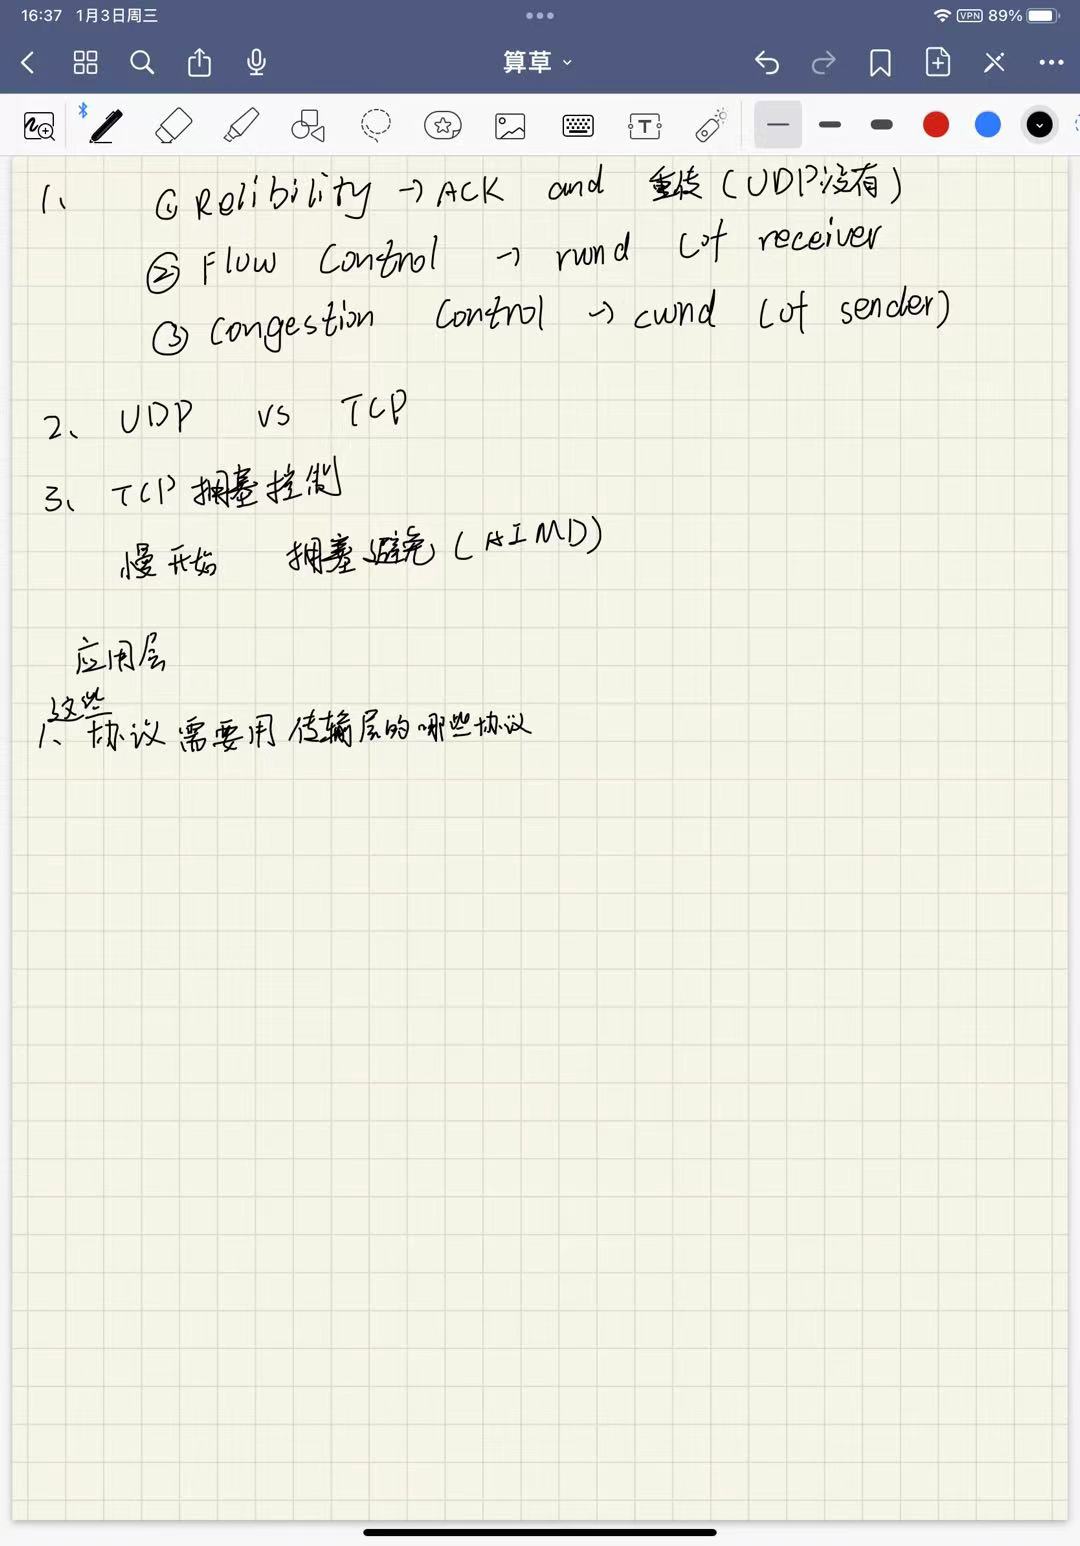 16:37 1月3日周三
VPN 89%
算草
T
1、 ① Relibility → ACK and 重传 (UDP没有)
② Flow Control → rwnd (of receiver
③ Congestion Control → cwnd (of sender)
2、 UDP vs TCP
3、 TCP 拥塞控制
慢开始 拥塞避免 (AIMD)
应用层
这些
1、协议需要用传输层的哪些协议